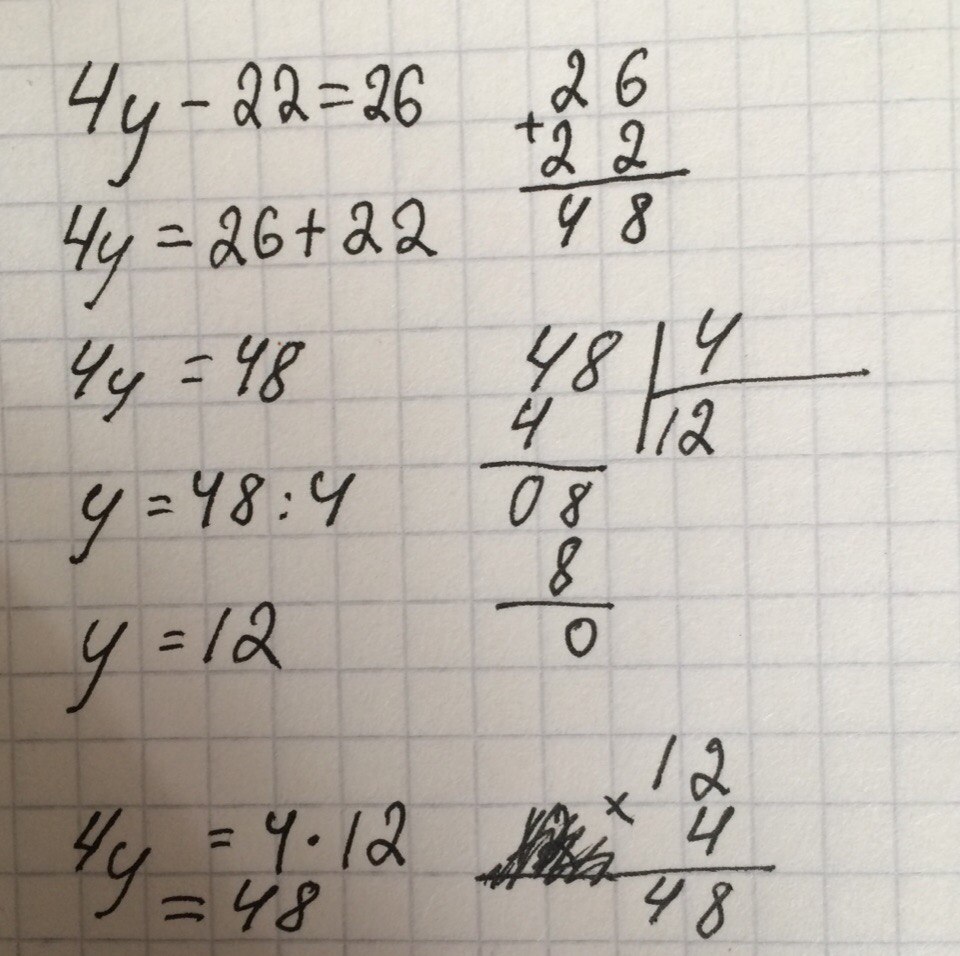 4y - 22 = 26
4y = 26 + 22
4y = 48
y = 48 : 4
y = 12
4y = 4 · 12
= 48
26
+
22
48
48 | 4
4
12
08
8
0
12
×
4
48